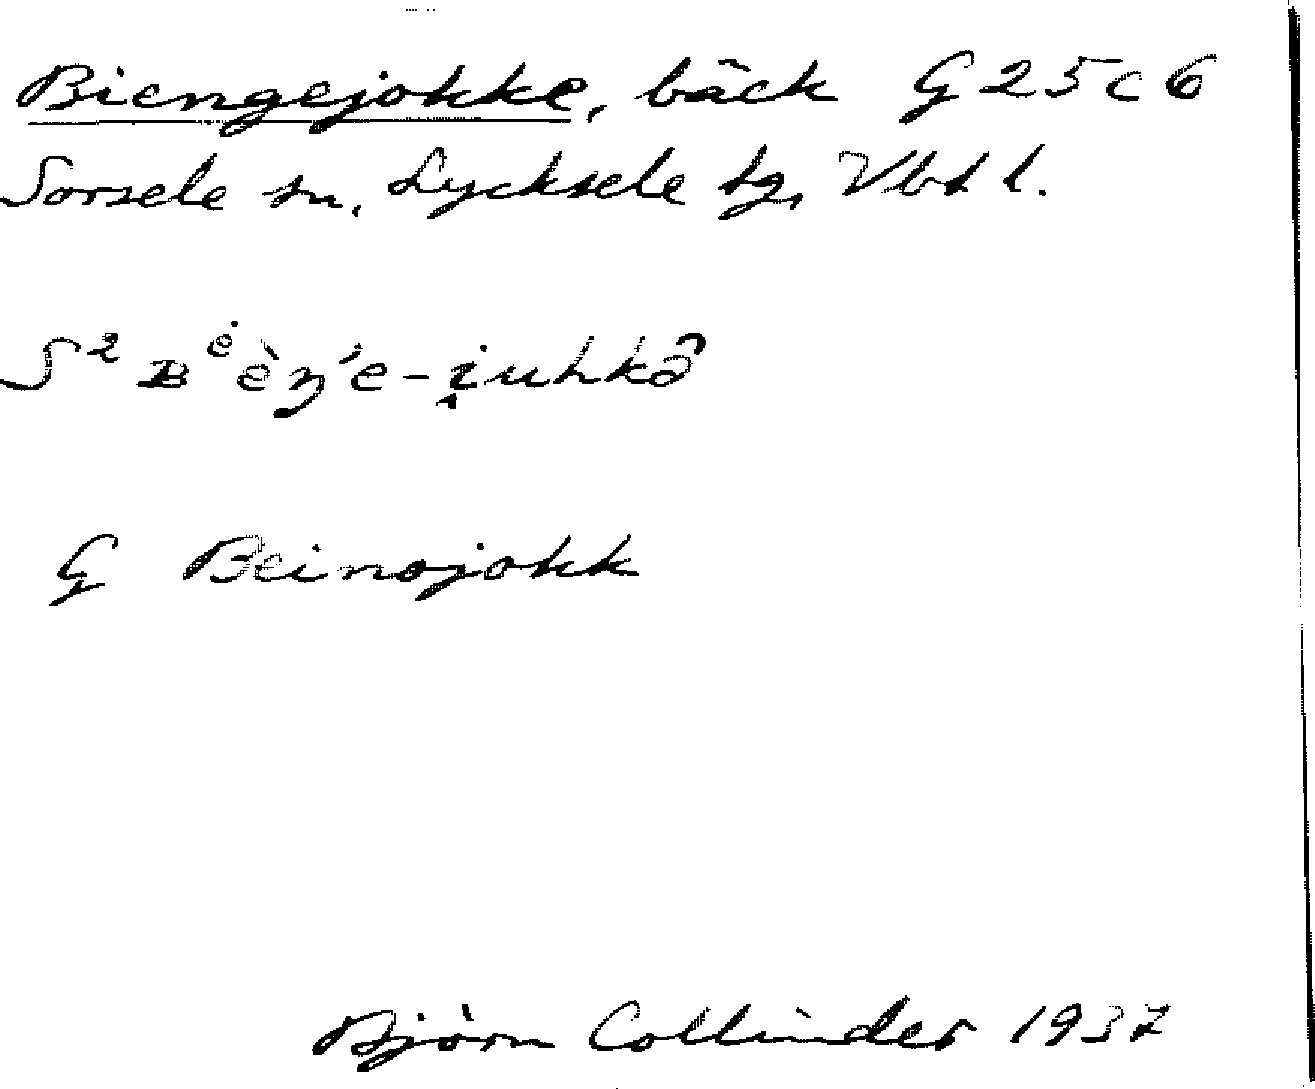 Biengejokke, bäck G25c6
Sorsele sn, Lycksele tg, Vbtl.
S² ʙᵉ̇èŋ́e-i̯uhkâ
G Beinojokk
Björn Collinder 1937